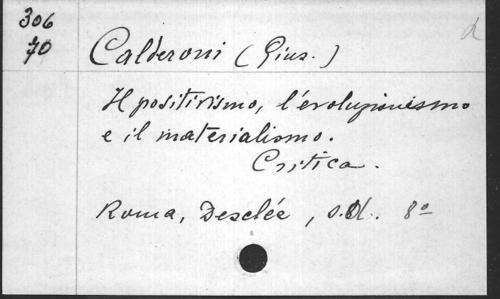 306
70
Calderoni (Gius.)
d
Il positivismo, l'évoluzionismo
e il materialismo.
Critica.
Roma, Desclée, s.d. 8º